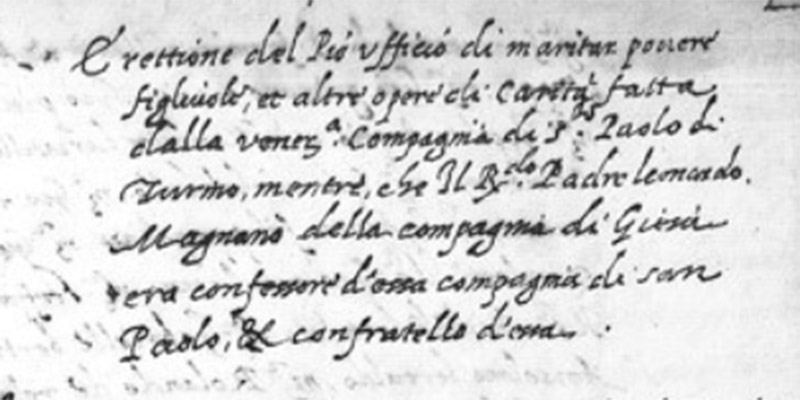 Erettione del Pio ufficio di maritar povere
figliuole, et altre opere di Carità fatta
dalla vener.a Compagnia di S.to Paolo di
Turino, mentre, che Il R.do Padre leonardo
Magnano della compagnia di Giesù
era confessore d'essa compagnia di san
Paolo, & confratello d'essa.